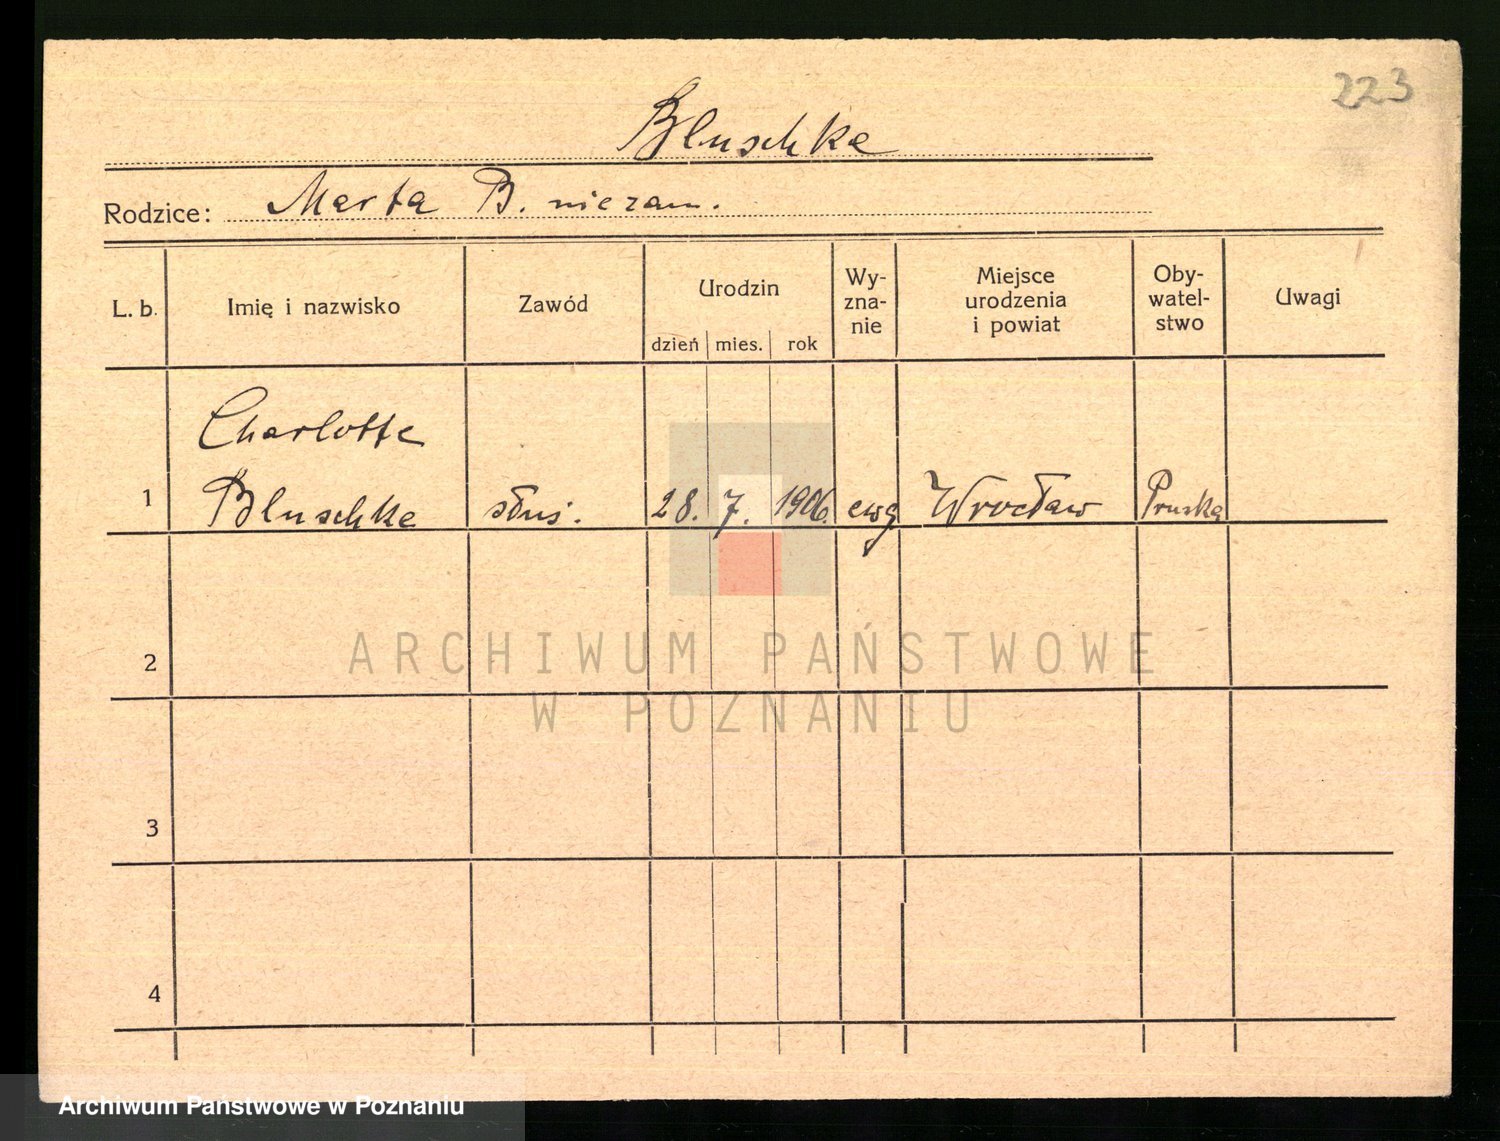 223
Bluschke
Rodzice: Marta B. niezam.
L. b. Imię i nazwisko Zawód Urodzin dzień mies. rok Wy-zna-nie Miejsce urodzenia i powiat Oby-watel-stwo Uwagi
Charlotte
1 Bluschke służ. 28. 7. 1906. ewg Wrocław Pruska
2
3
4
ARCHIWUM PAŃSTWOWE
W POZNANIU
Archiwum Państwowe w Poznaniu